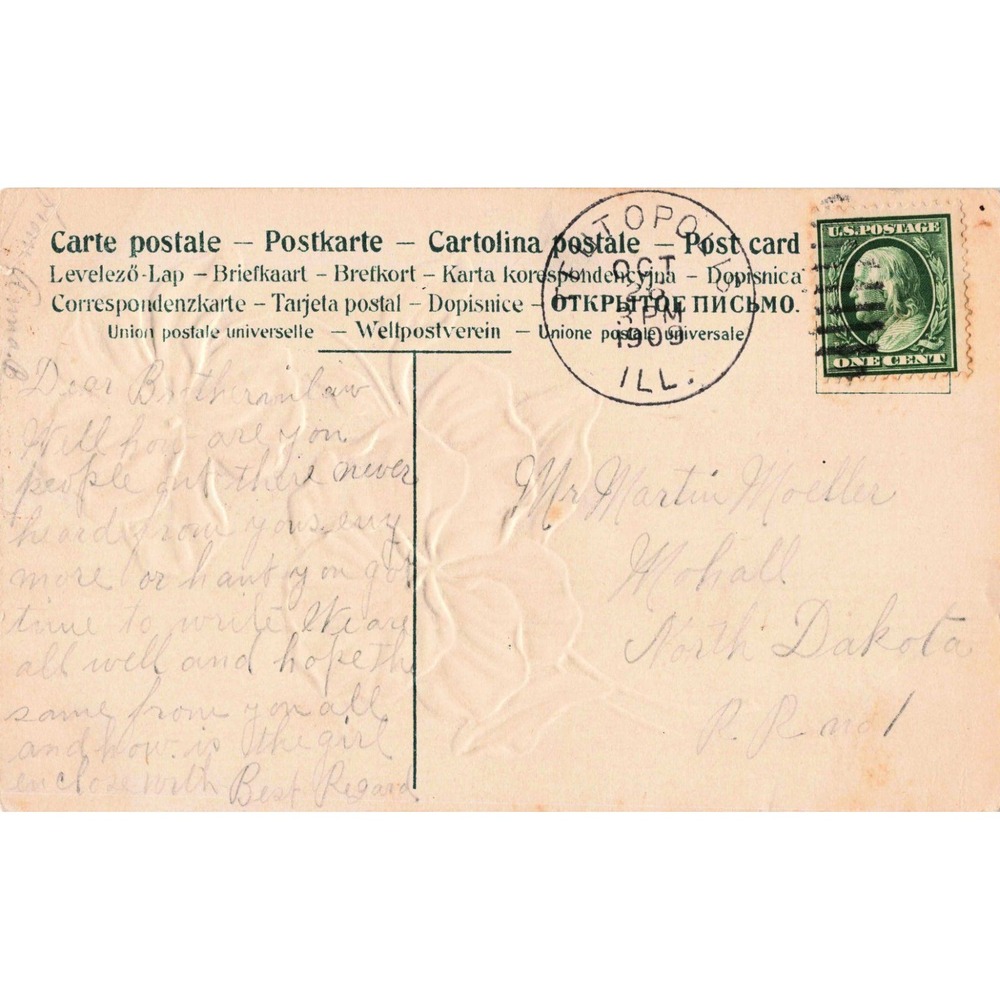 Carte postale – Postkarte – Cartolina postale – Post card
Levelező-Lap – Briefkaart – Brefkort – Karta korespondencyjna – Dopisnica
Correspondenzkarte – Tarjeta postal – Dopisnice – ОТКРЫТОЕ ПИСЬМО.
Union postale universelle – Weltpostverein – Unione postale universale
TEUTOPOLIS
OCT
3 PM
1909
ILL.
U.S. POSTAGE
ONE CENT
from
Dear Brotherinlaw
Well how are you
people out there never
heard from yous eny
more or hant you got
time to write We are
all well and hope the
same from you all
and how is the girl
enclose with Best Regard
Mr Martin Moeller
Mohall
North Dakota
R R no 1